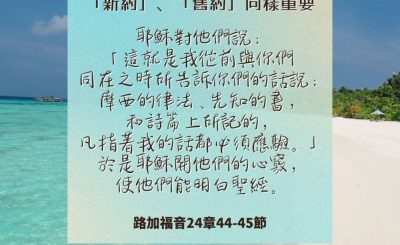 「新約」、「舊約」同樣重要
耶穌對他們說：
「這就是我從前與你們
同在之時所告訴你們的話說：
摩西的律法、先知的書，
和詩篇上所記的，
凡指著我的話都必須應驗。」
於是耶穌開他們的心竅，
使他們能明白聖經。
路加福音24章44-45節